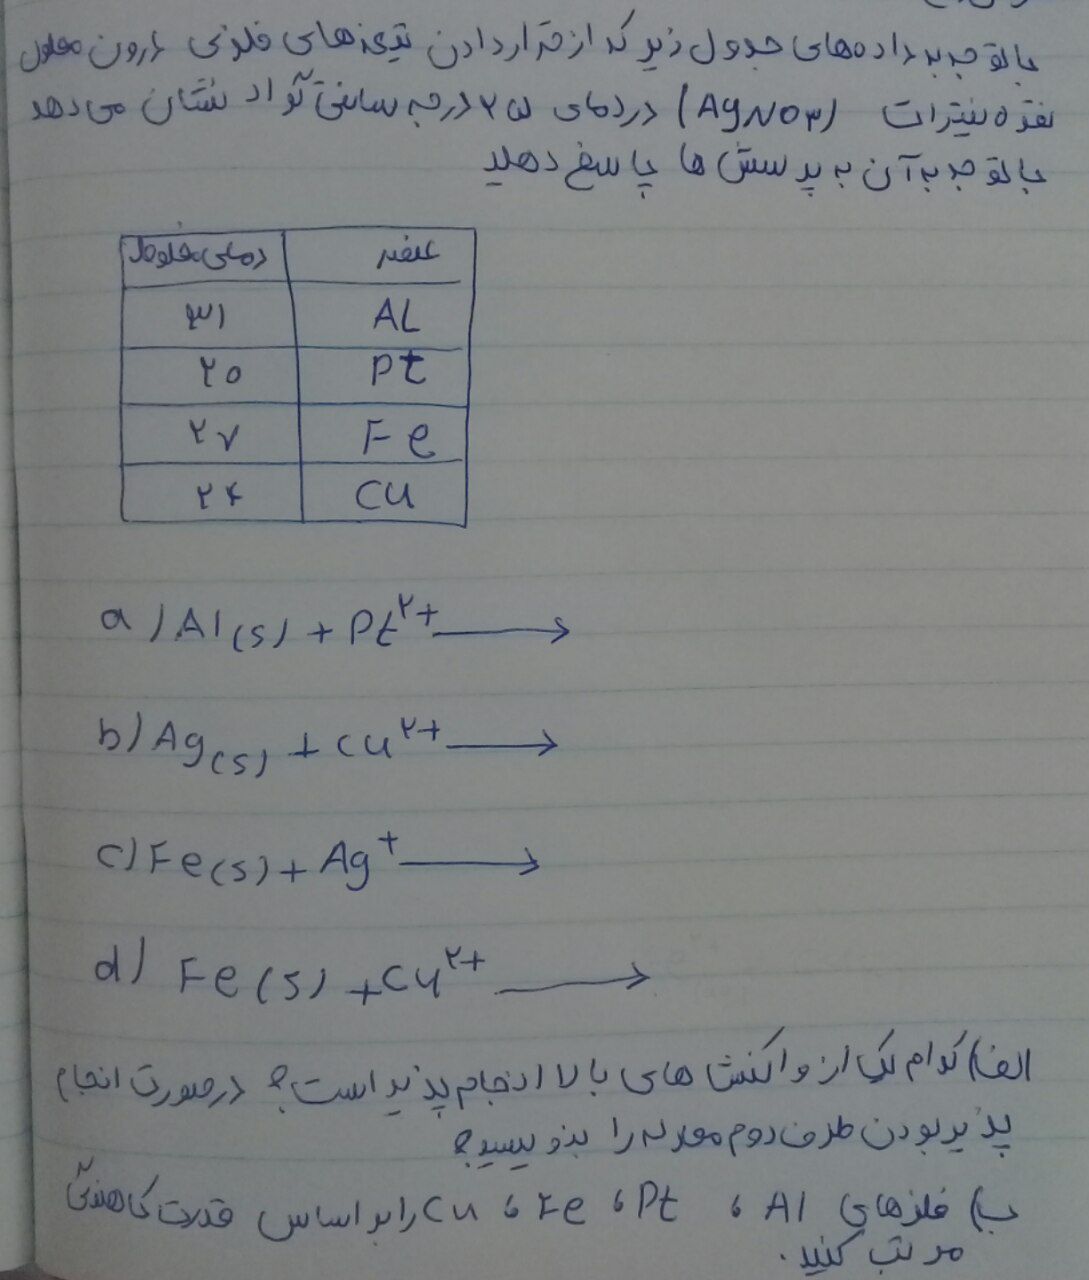 باتوجه به داده‌های جدول زیر که از قرار دادن تیغه‌های فلزی درون محلول
نقره نیترات (AgNO۳) در دمای ۲۵ درجه سانتی‌گراد نشان می‌دهد
باتوجه به آن به پرسش ها پاسخ دهید
عنصر دمای مخلوط
AL ۳۱
Pt ۲۰
Fe ۲۷
Cu ۲۴
a) Al(s) + Pt²⁺ →
b) Ag(s) + Cu²⁺ →
c) Fe(s) + Ag⁺ →
d) Fe(s) + Cu²⁺ →
الف) کدام یک از واکنش های بالا انجام پذیر است؟ در صورت انجام
پذیر بودن طرف دوم معادله را بنویسید؟
ب) فلزهای Al ، Pt ، Fe ، Cu را بر اساس قدرت کاهندگی
مرتب کنید.